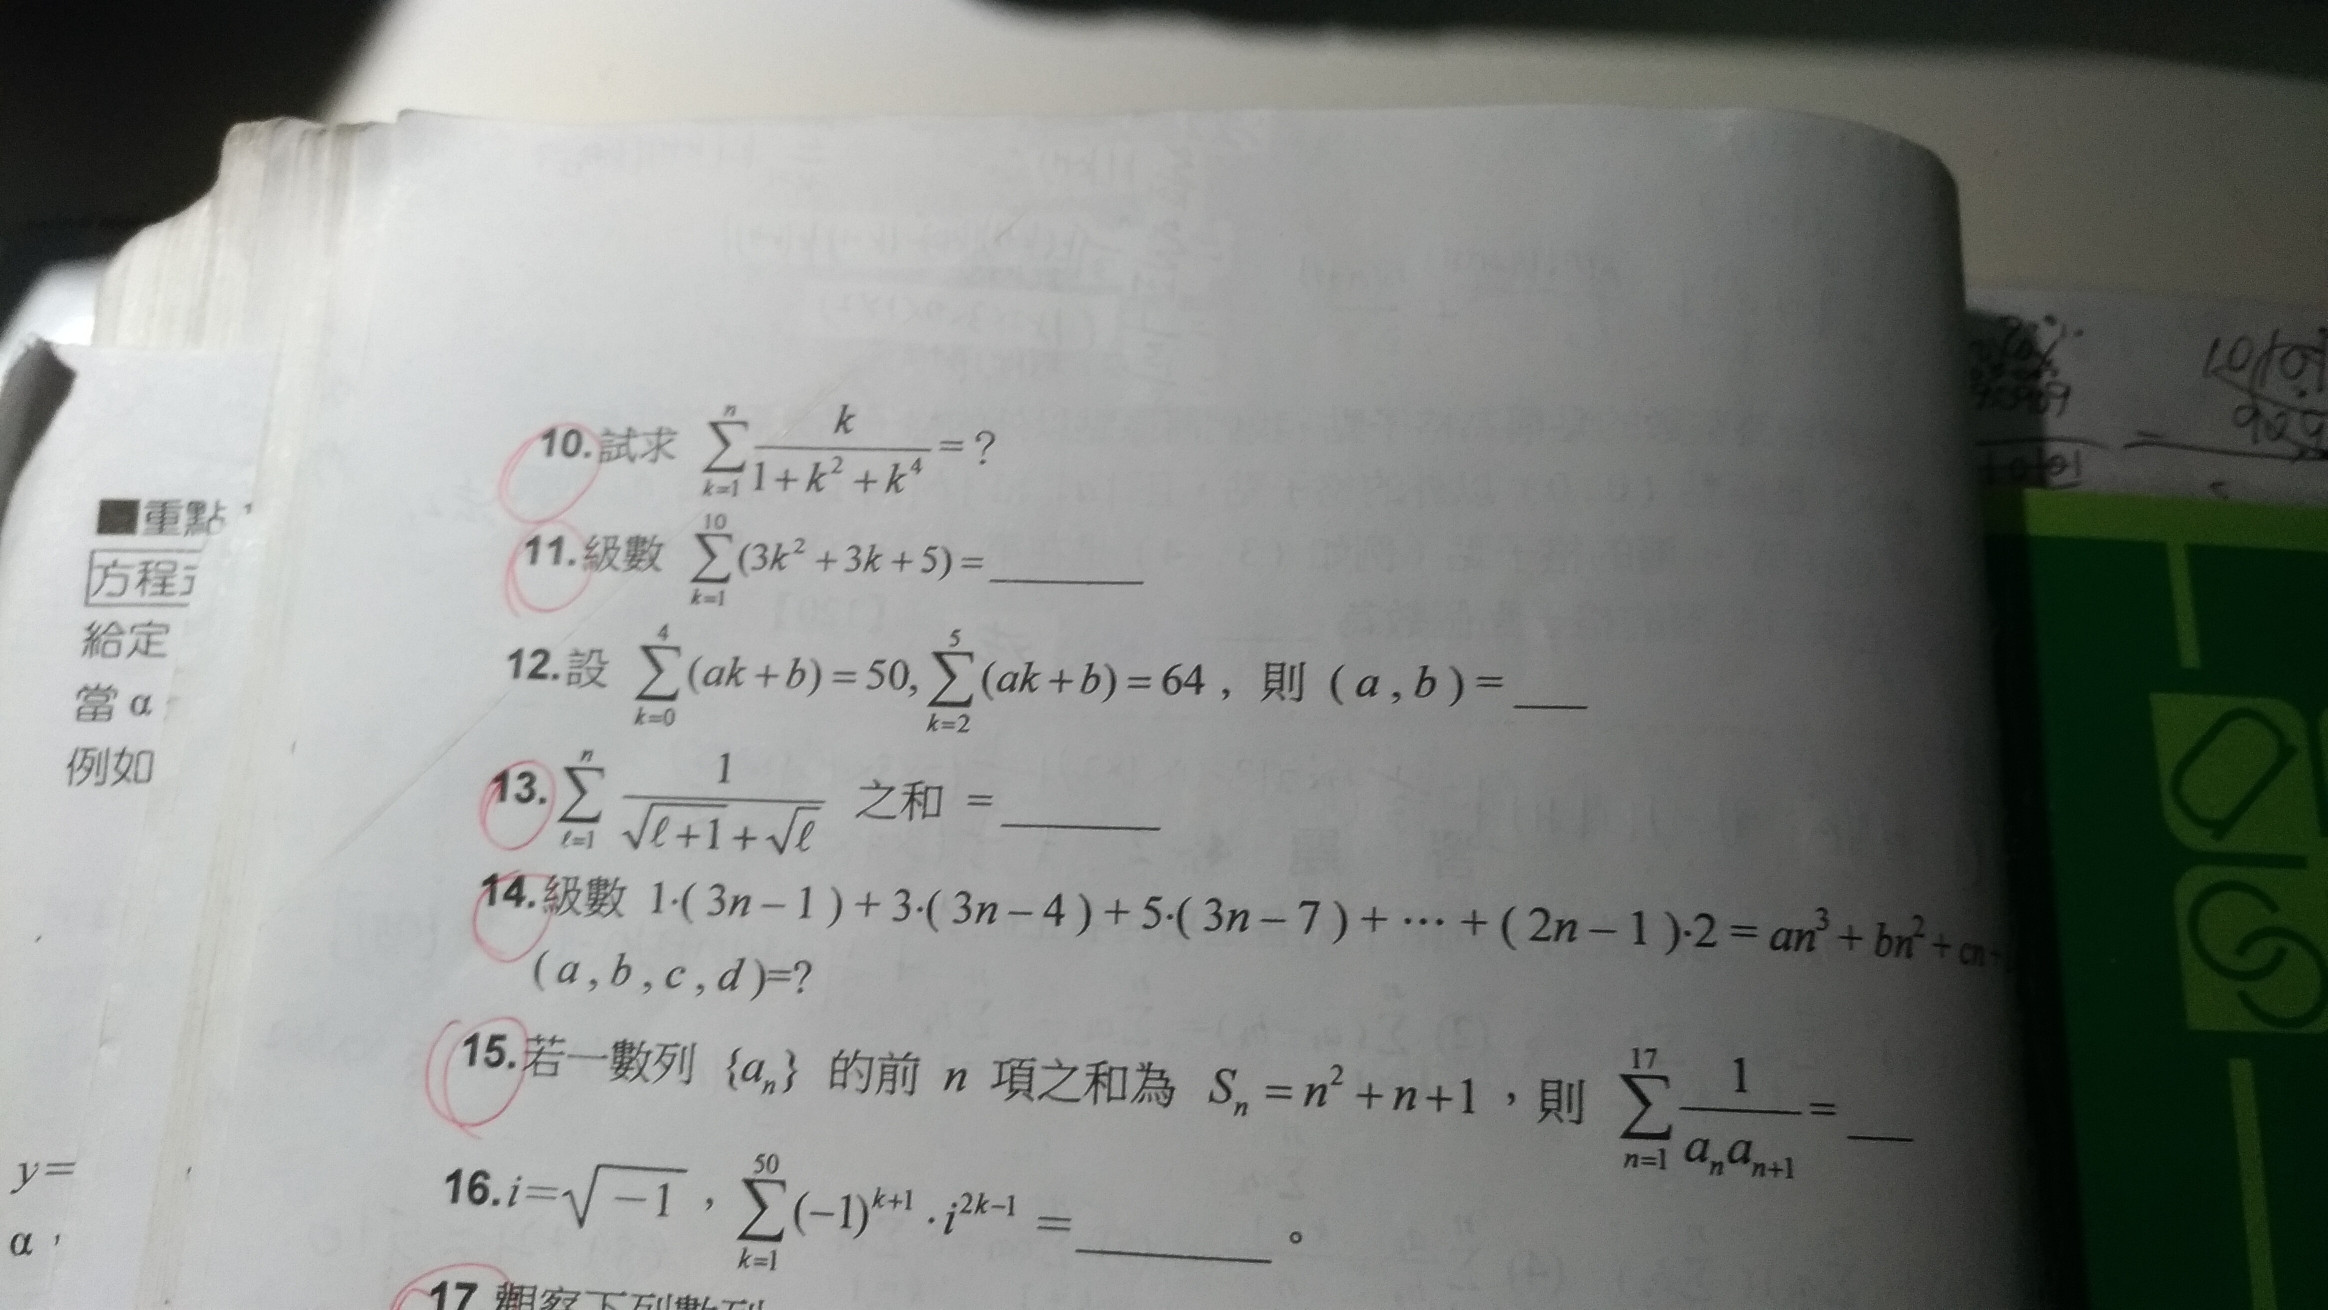 10.試求 $\sum_{k=1}^{n}\frac{k}{1+k^2+k^4}=?$
11.級數 $\sum_{k=1}^{10}(3k^2+3k+5)=$ ______
12.設 $\sum_{k=0}^{4}(ak+b)=50,\sum_{k=2}^{5}(ak+b)=64$ , 則 ( a , b ) = ___
13. $\sum_{\ell=1}^{n}\frac{1}{\sqrt{\ell+1}+\sqrt{\ell}}$ 之和 = ______
14.級數 1·( 3n – 1 ) + 3·( 3n – 4 ) + 5·( 3n – 7 ) + ⋯ + ( 2n – 1 )·2 = $an^3+bn^2+cn$
( a , b , c , d )=?
15.若一數列 $\{a_n\}$ 的前 n 項之和為 $S_n=n^2+n+1$ ,則 $\sum_{n=1}^{17}\frac{1}{a_na_{n+1}}=$ __
16. $i=\sqrt{-1}$ , $\sum_{k=1}^{50}(-1)^{k+1}\cdot i^{2k-1}=$ ________ 。
17.觀察下列數列
■重點
方程
給定
當 α
例如
y=
α ,